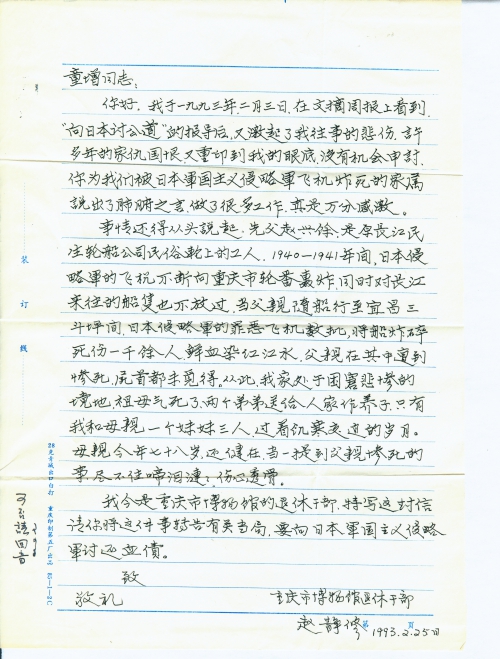 童增同志：
你好，我于一九九三年二月三日，在文摘周报上看到，
“向日本讨公道”的报导后，又激起了我往事的悲伤，許
多年的家仇国恨又重印到我的眼底，没有机会申討，
你为我们被日本軍国主义侵略軍飞机炸死的家属
說出了肺腑之言，做了很多工作，真是万分感激。
事情还得从头說起，先父赵兴徐，是原長江民
生轮船公司民俗轮上的工人，1940—1941年间，日本侵
略軍的飞机不断向重庆市轮番轰炸，同时对長江
来往的船隻也不放过，当父親随船行至宜昌三
斗坪间，日本侵略軍的罪恶飞机数机，将船炸碎
死伤一千餘人，鲜血染红江水，父親在其中遭到
惨死，尻首都未見得。从此，我家处于困窘悲惨的
境地，祖母气死了，两个弟弟送给人家作养子，只有
我和母親，一个妹妹三人，过着饥寒交迫的岁月。
母親今年七十八岁，还健在，当一提到父親惨死的
事，尽不住啼泪漣漣，伤心透骨。
我今是重庆市博物馆的退休干部，特写这封信
请你将这件事转告有关当局，要向日本軍国主义侵略
軍讨还血債。
致
敬礼
重庆市博物馆退休干部
赵静修
1993.2.25日
第 页
装 订 线
回音